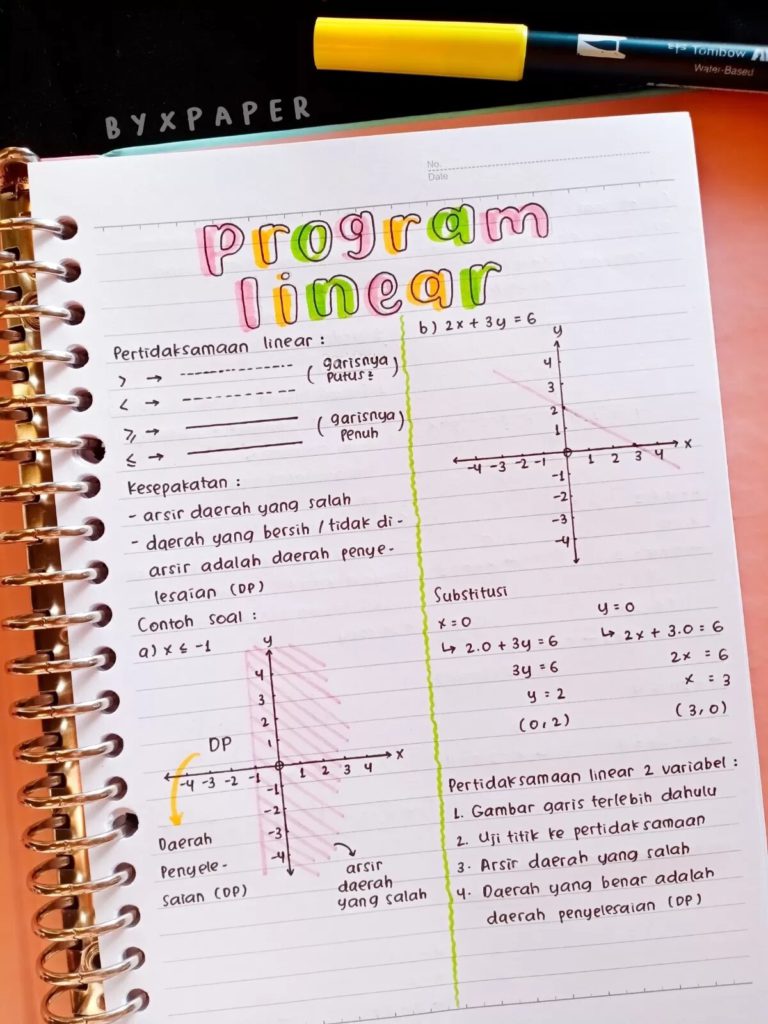 Tombow
Water-Based
BYXPAPER
No.
Date
program
linear
Pertidaksamaan linear :
> → ------------ (garisnya
putus²)
< → ------------
≥ → ———— (garisnya
penuh)
≤ → ————
Kesepakatan :
- arsir daerah yang salah
- daerah yang bersih / tidak di-
arsir adalah daerah penye-
lesaian (DP)
Contoh soal :
a) x ≤ -1
y
4
3
2
1
DP
x
-4 -3 -2 -1 1 2 3 4
-1
-2
-3
-4
Daerah
Penyele-
saian (DP)
arsir
daerah
yang salah
b) 2x + 3y = 6
y
4
3
2
1
x
-4 -3 -2 -1 1 2 3 4
-1
-2
-3
-4
Substitusi
x = 0
↳ 2.0 + 3y = 6
3y = 6
y = 2
(0,2)
y = 0
↳ 2x + 3.0 = 6
2x = 6
x = 3
(3,0)
Pertidaksamaan linear 2 variabel :
1. Gambar garis terlebih dahulu
2. Uji titik ke pertidaksamaan
3. Arsir daerah yang salah
4. Daerah yang benar adalah
daerah penyelesaian (DP)